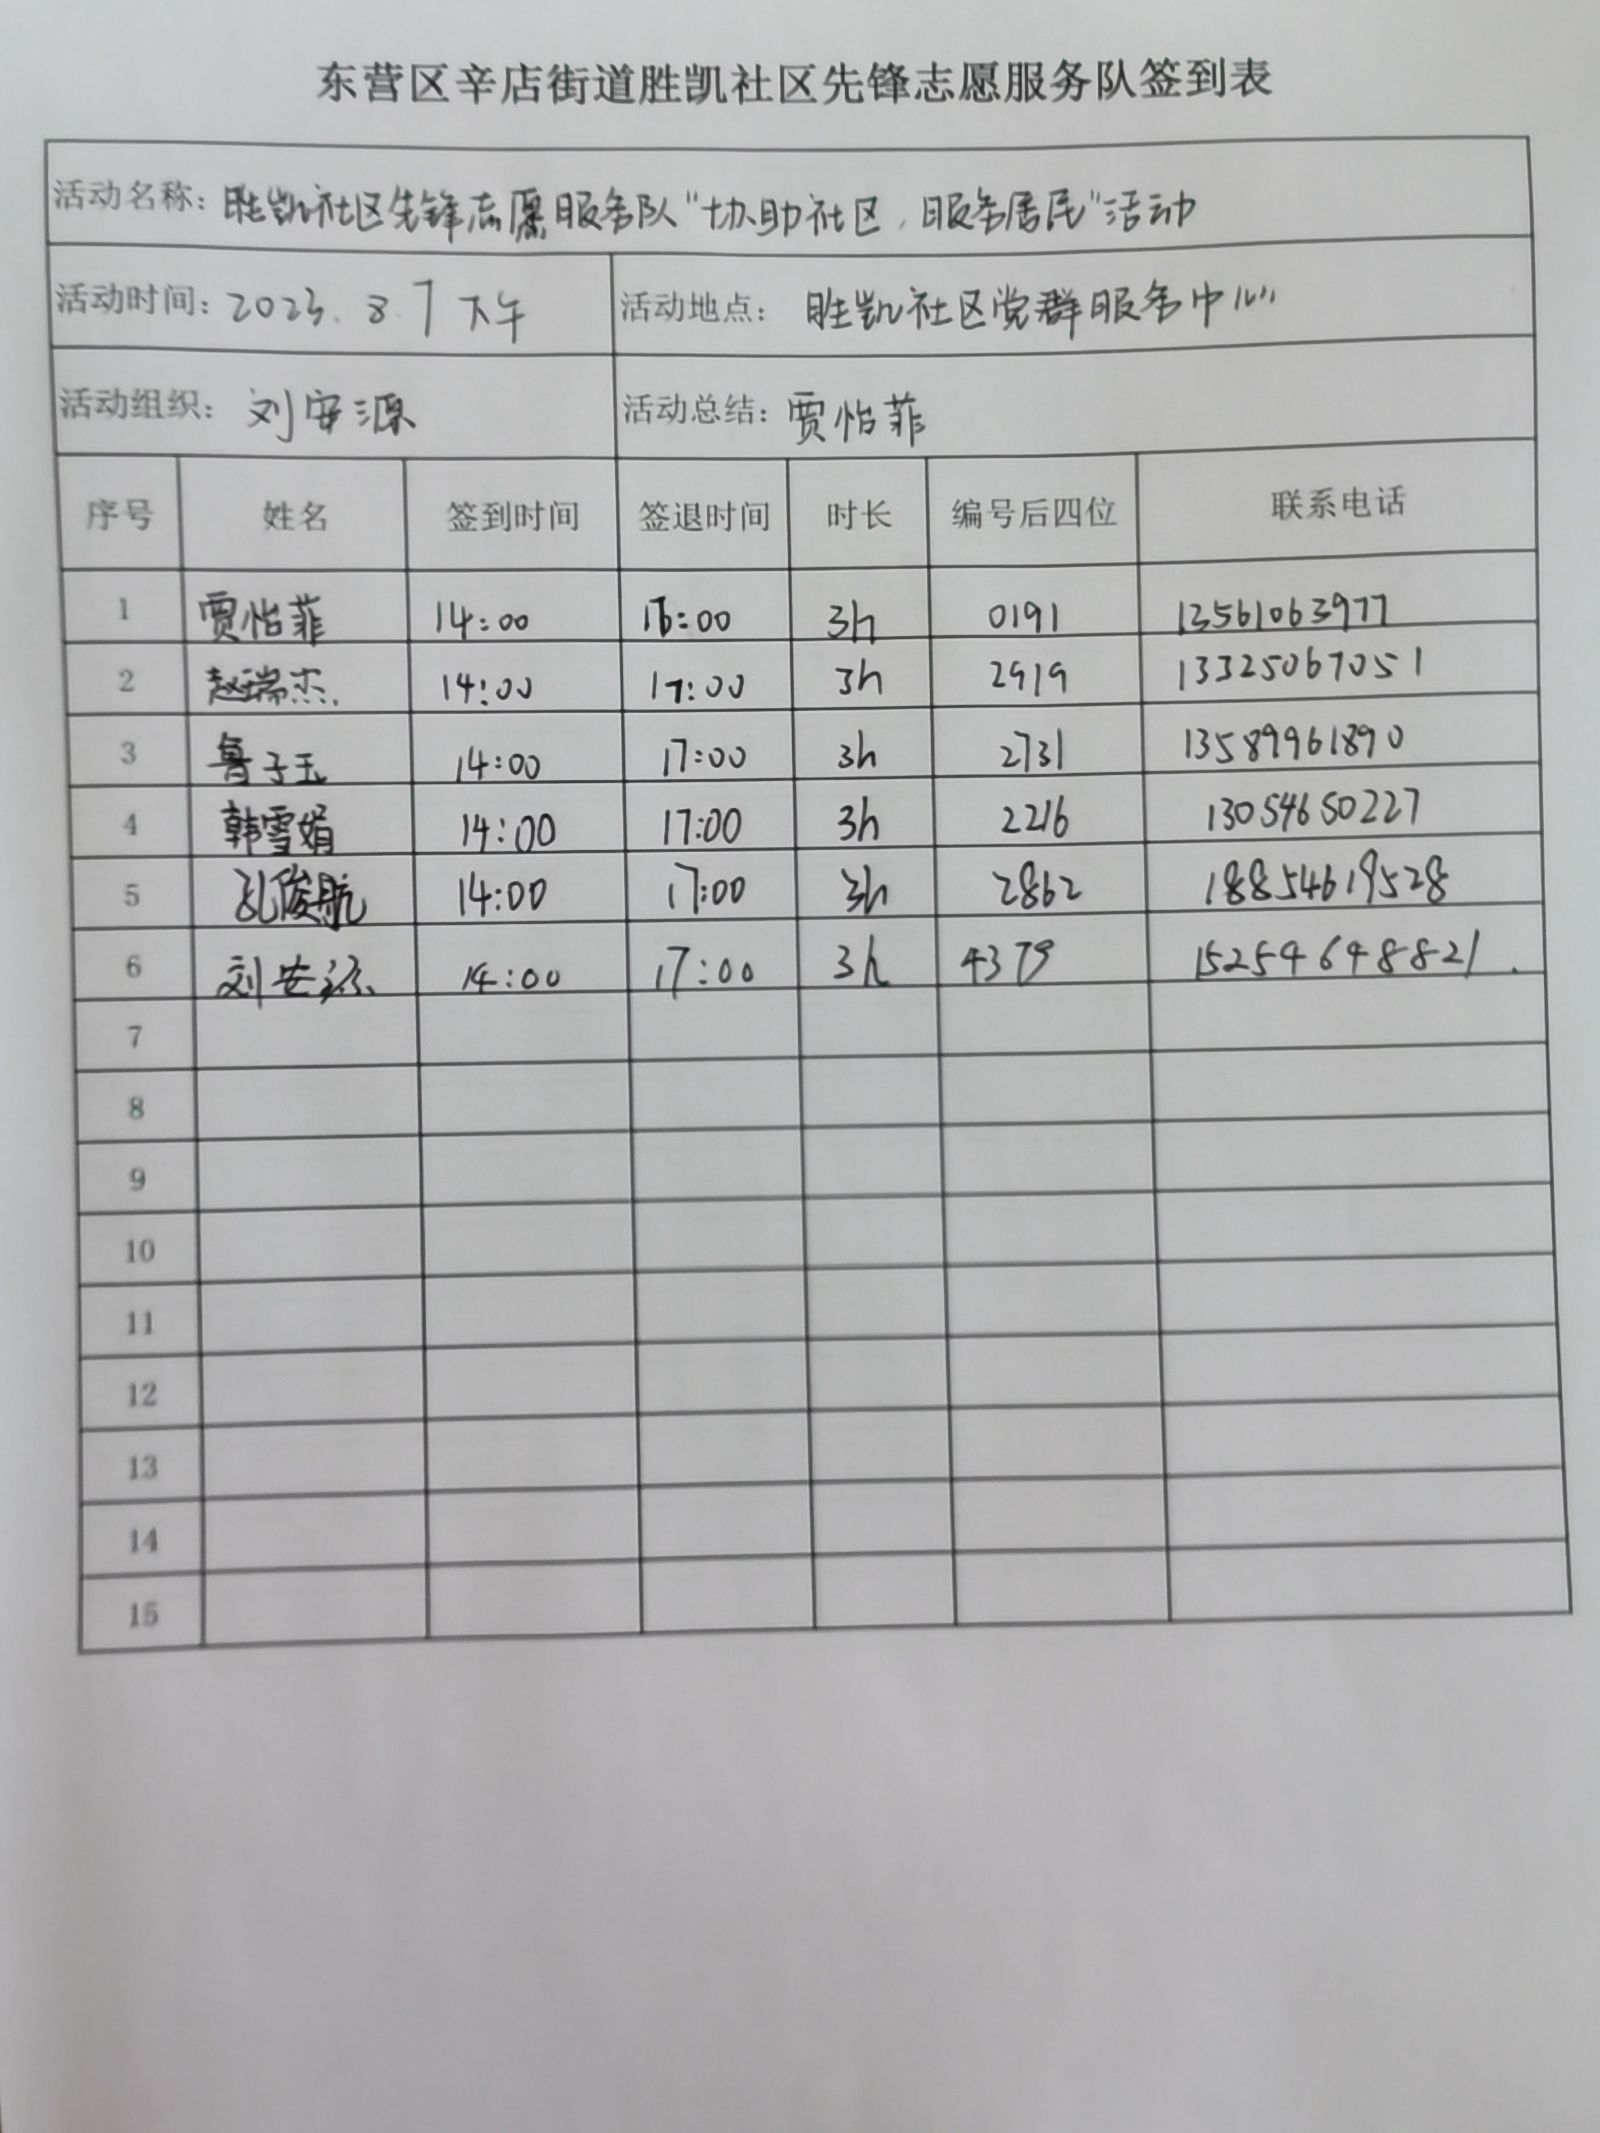 东营区辛店街道胜凯社区先锋志愿服务队签到表
活动名称：胜凯社区先锋志愿服务队“协助社区，服务居民”活动
活动时间：2023.8.7下午 活动地点：胜凯社区党群服务中心
活动组织：刘安源 活动总结：贾怡菲
序号 姓名 签到时间 签退时间 时长 编号后四位 联系电话
1 贾怡菲 14:00 :00 3h 0191 13561063977
2 赵瑞杰. 14:00 17:00 3h 2919 13325067051
3 鲁子玉 14:00 17:00 3h 2731 13589961890
4 韩雪娟 14:00 17:00 3h 2216 13054650227
5 孔俊航 14:00 17:00 3h 2862 18854619528
6 刘安源 14:00 17:00 3h 4379 15254648821.
7
8
9
10
11
12
13
14
15